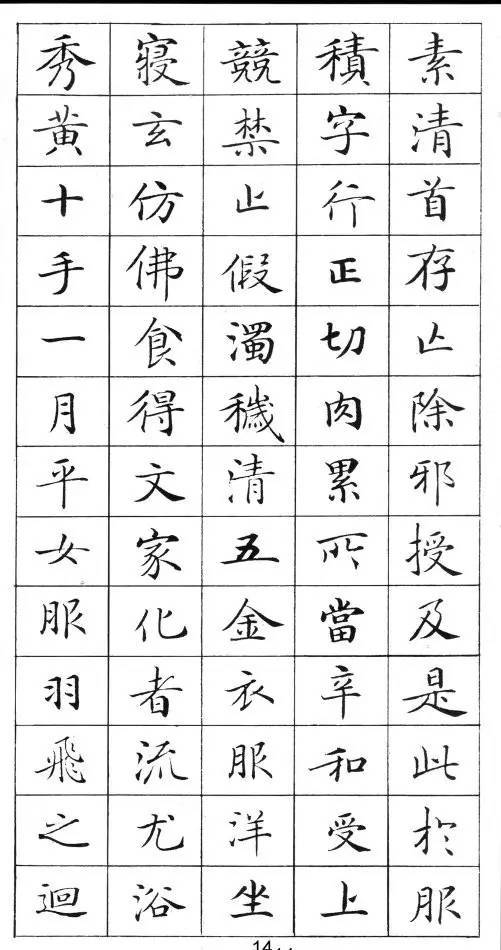 素清首存亾除邪授及是此於服
積字行正切肉累所當辛和受上
競禁止假濁穢清五金衣服洋坐
寢玄仿佛食得文家化者流尤浴
秀黄十手一月平女服羽飛之迴
14